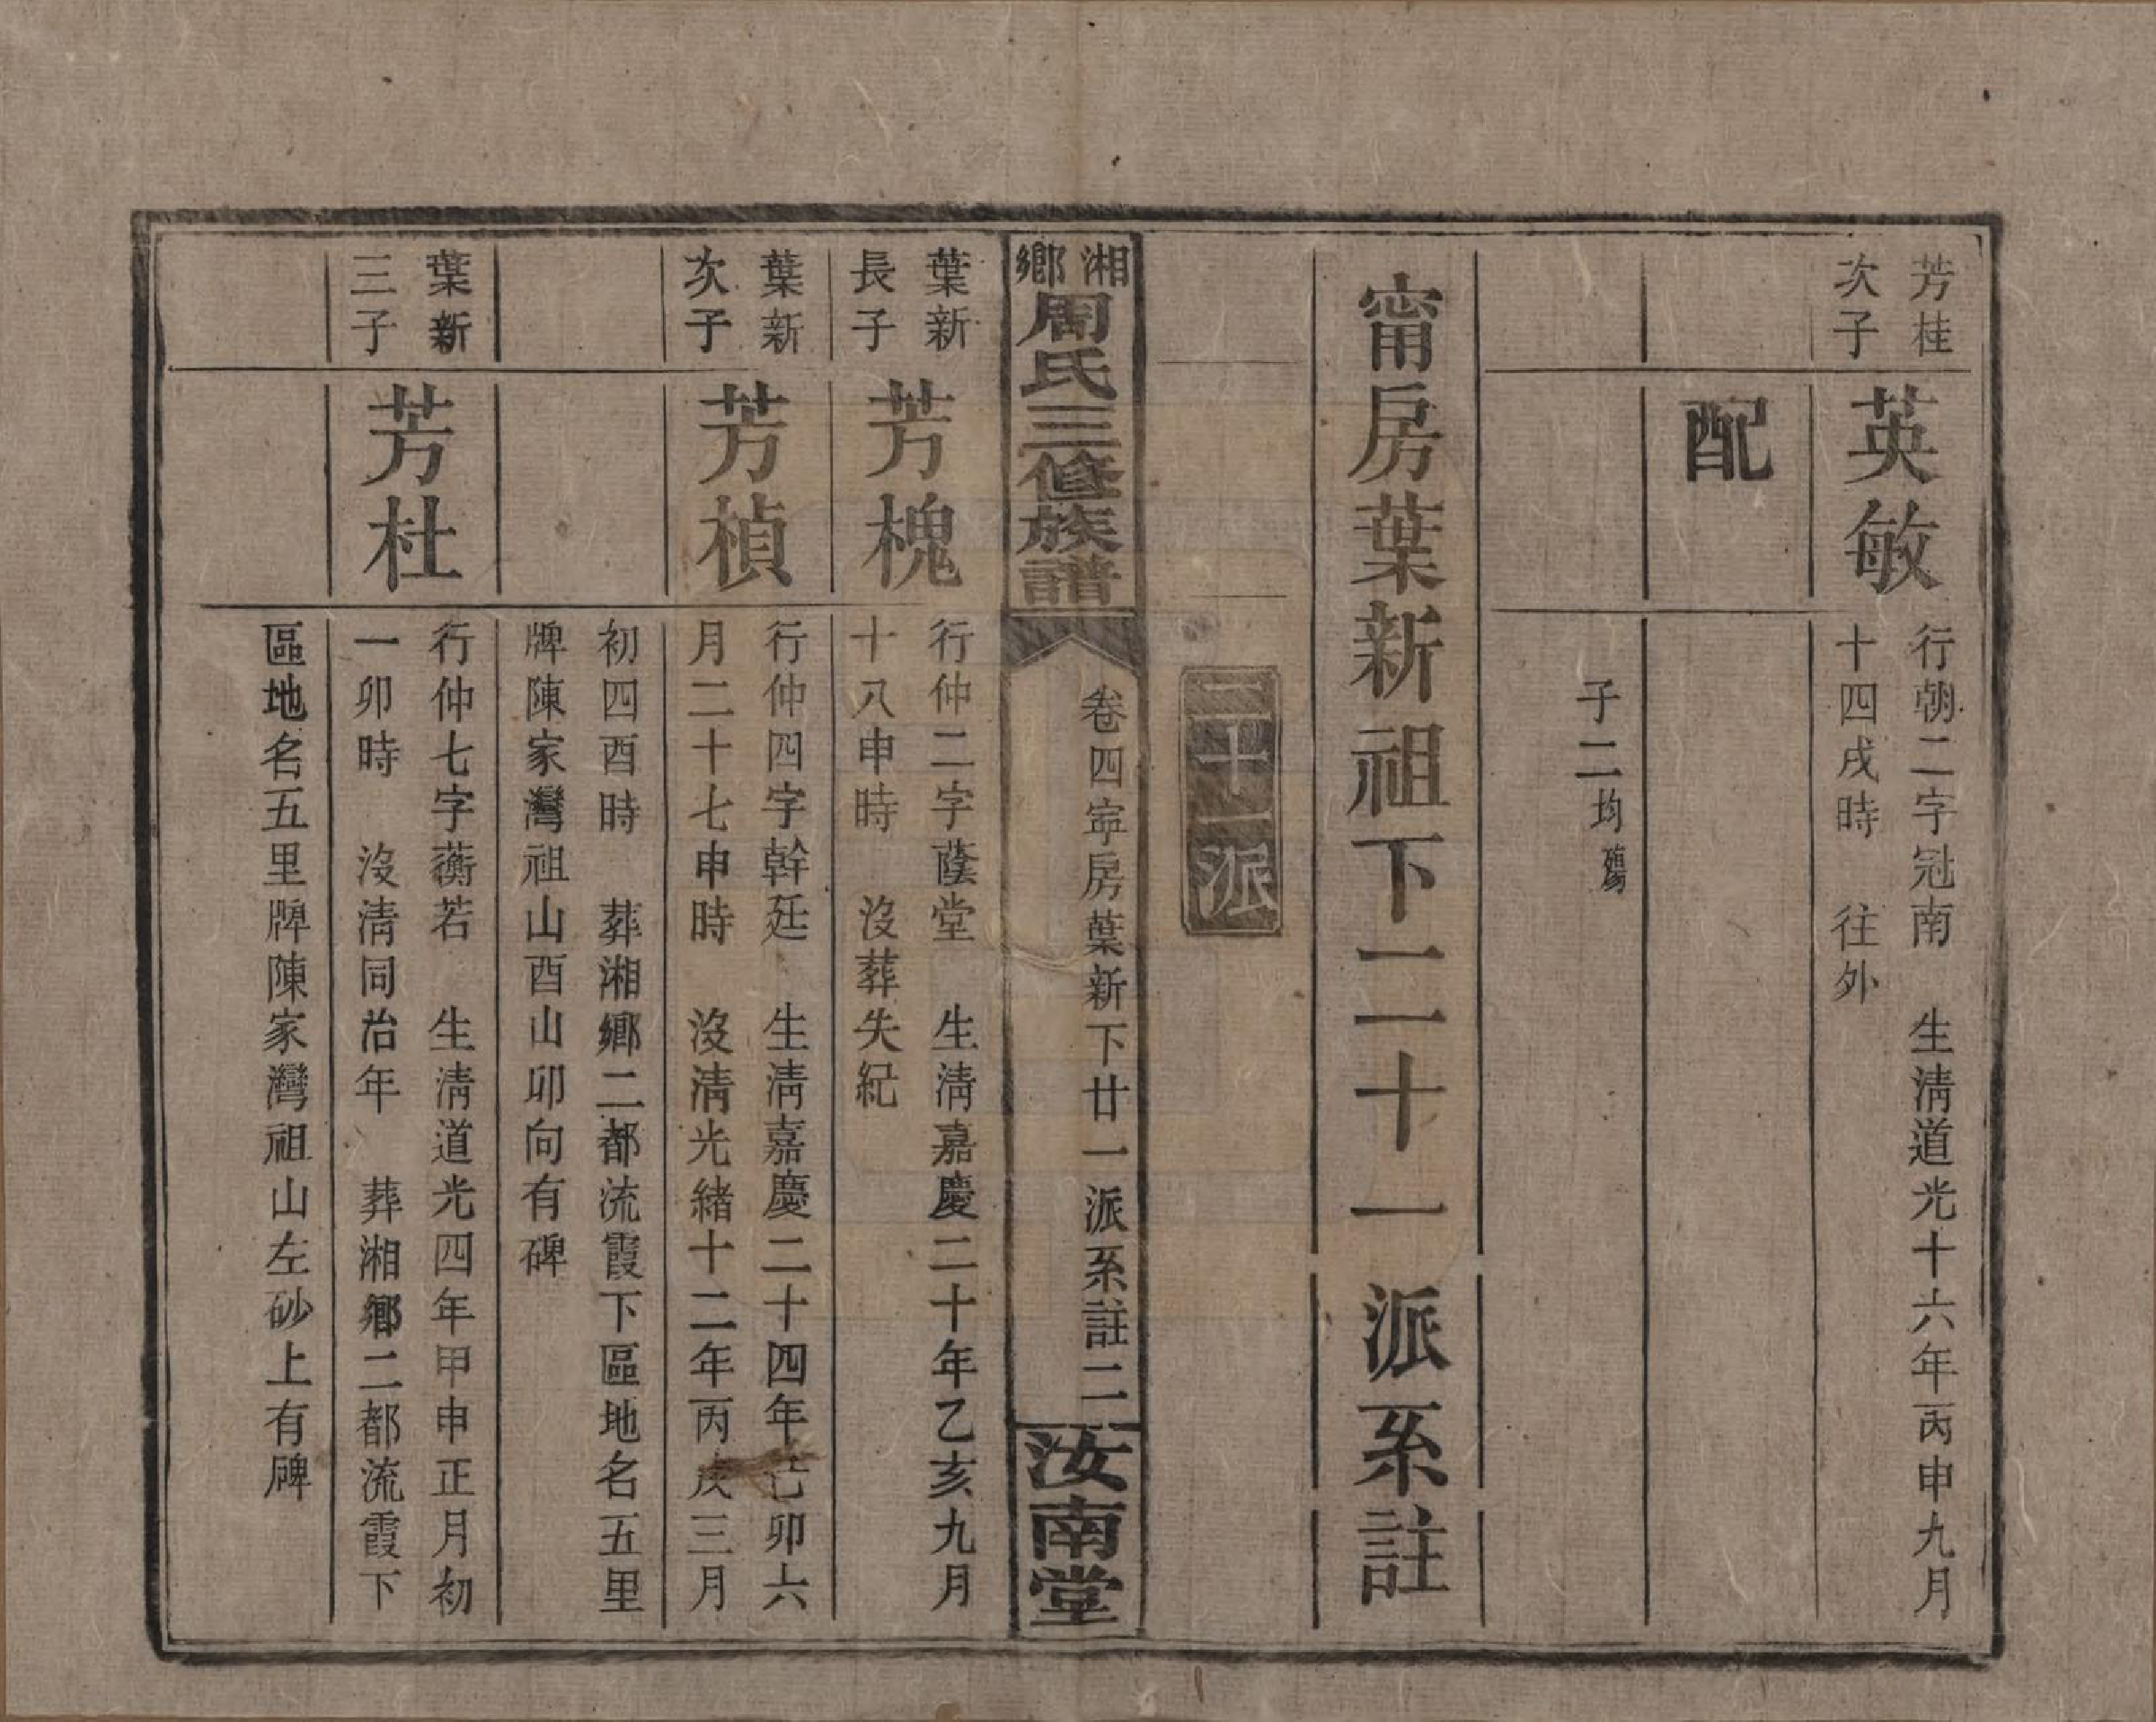 芳桂
次子
英敏
行朝二字冠南　生清道光十六年丙申九月
十四戌時　往外
配
子二均殤
甯房葉新祖下二十一派系註
二十一派
湘鄉周氏三修族譜
卷四甯房葉新下廿一派系註二
汝南堂
葉新
長子
芳槐
行仲二字蔭堂　生清嘉慶二十年乙亥九月
十八申時　沒葬失紀
葉新
次子
芳楨
行仲四字幹廷　生清嘉慶二十四年己卯六
月二十七申時　沒清光緒十二年丙戌三月
初四酉時　葬湘鄉二都流霞下區地名五里
牌陳家灣祖山酉山卯向有碑
葉新
三子
芳杜
行仲七字蘅若　生清道光四年甲申正月初
一卯時　沒清同治年　葬湘鄉二都流霞下
區地名五里牌陳家灣祖山左砂上有碑